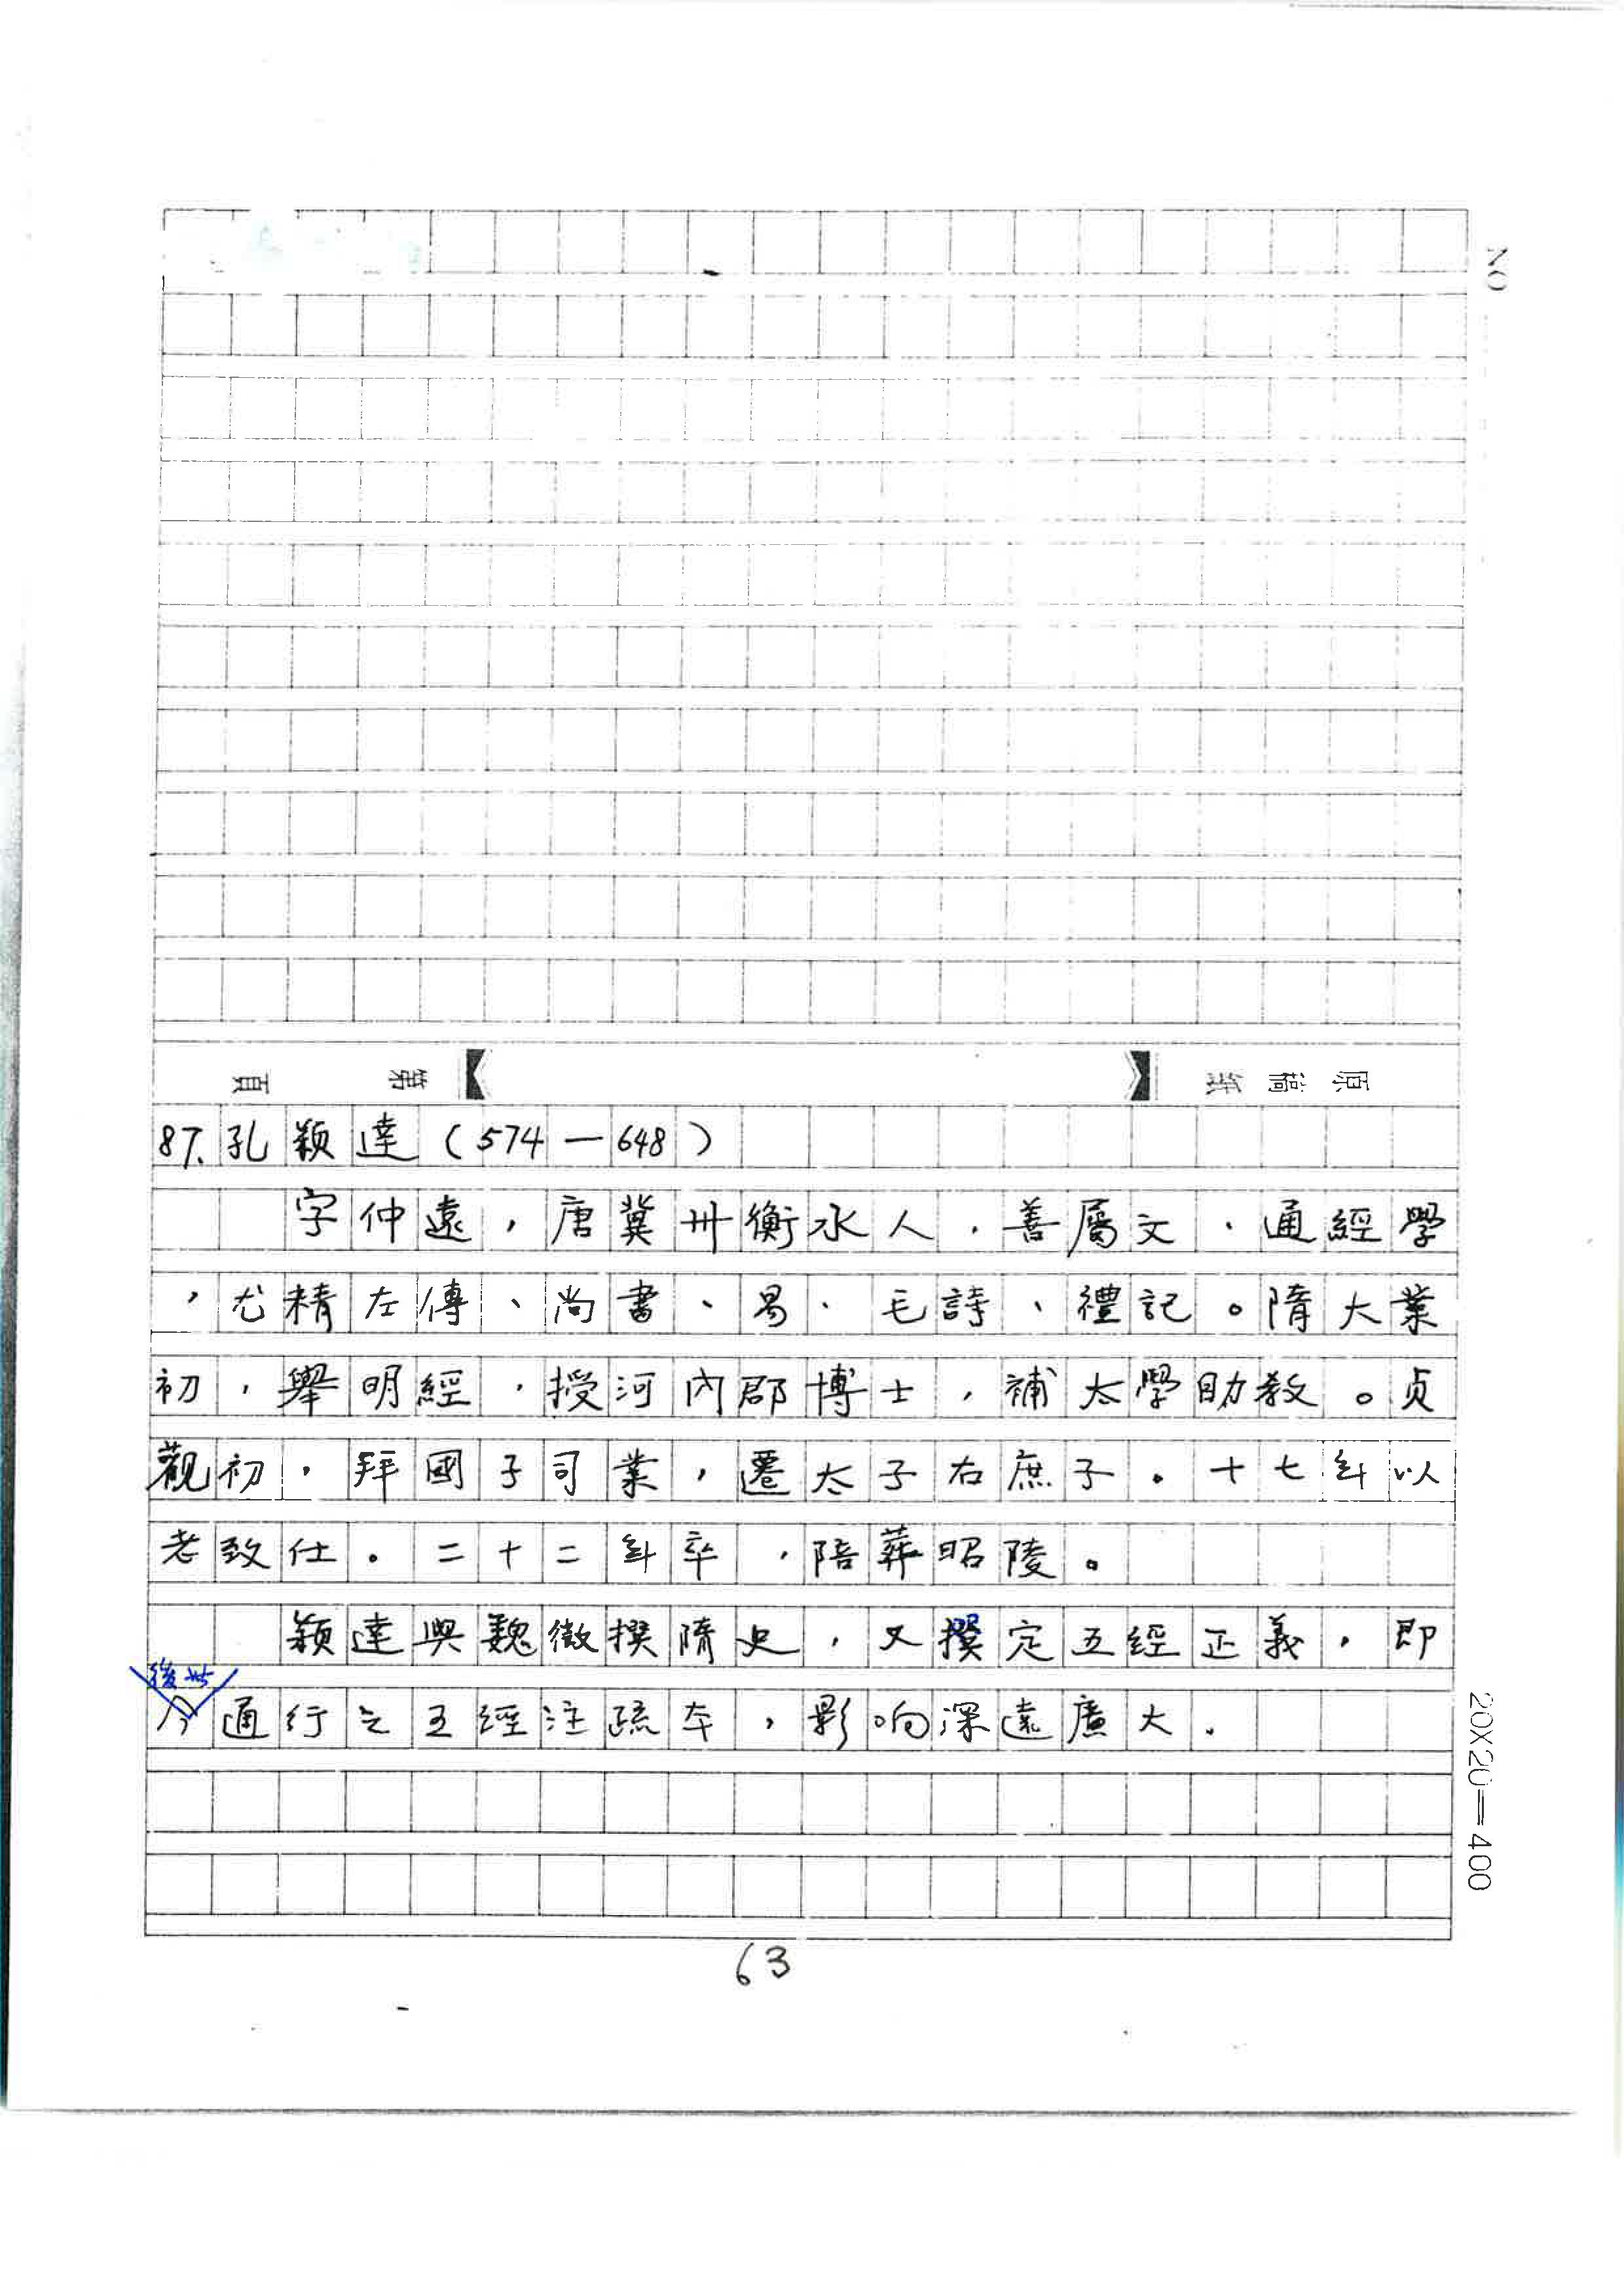 NO
第　頁
原稿紙
87.孔穎達（574—648）
字仲遠，唐冀州衡水人，善屬文，通經學
，尤精左傳、尚書、易、毛詩、禮記。隋大業
初，舉明經，授河內郡博士，補太學助教。貞
觀初，拜國子司業，遷太子右庶子。十七年以
老致仕。二十二年卒，陪葬昭陵。
穎達與魏徵撰隋史，又撰定五經正義，即
後世
今通行之五經注疏本，影响深遠廣大。
20X20=400
63